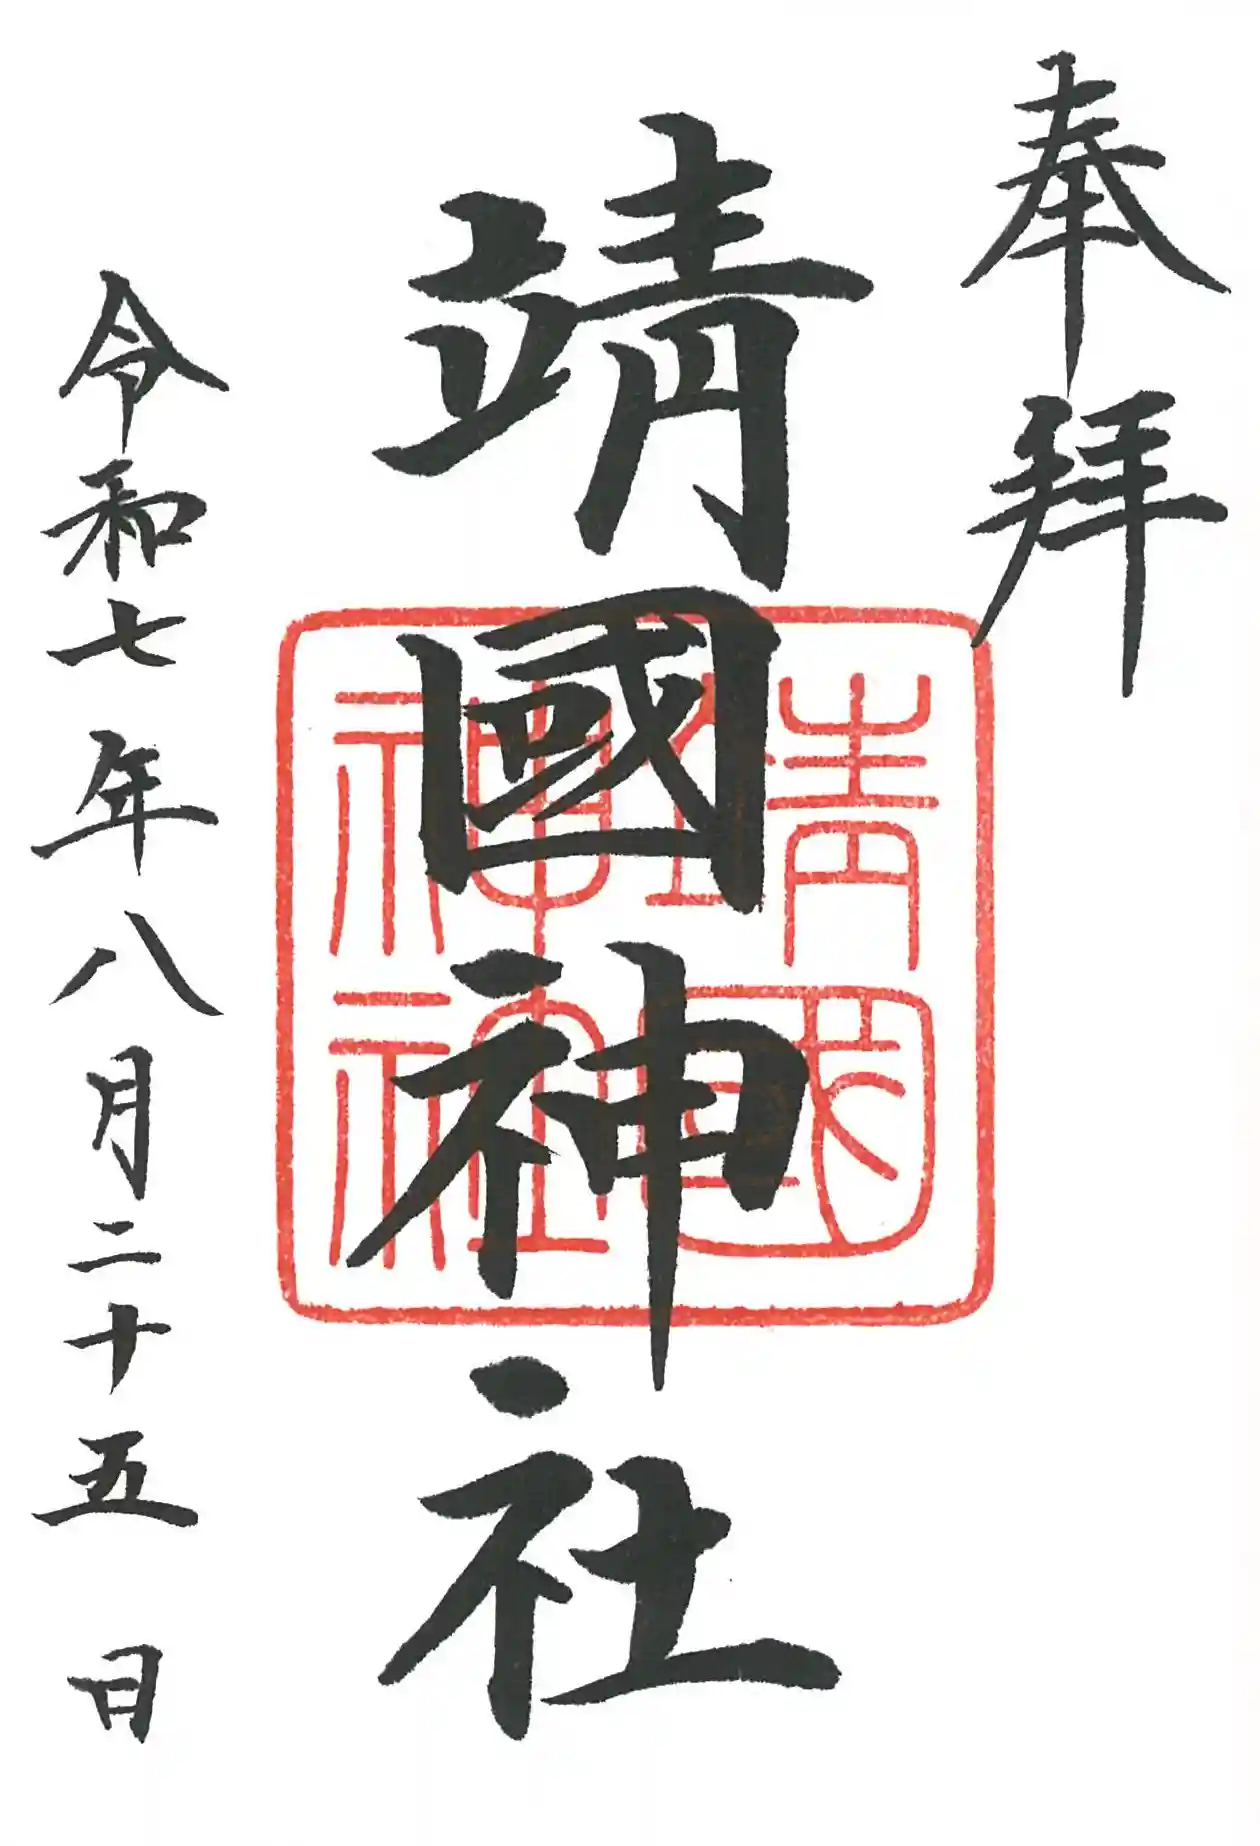 奉拝
靖國神社
靖國神社
令和七年八月二十五日